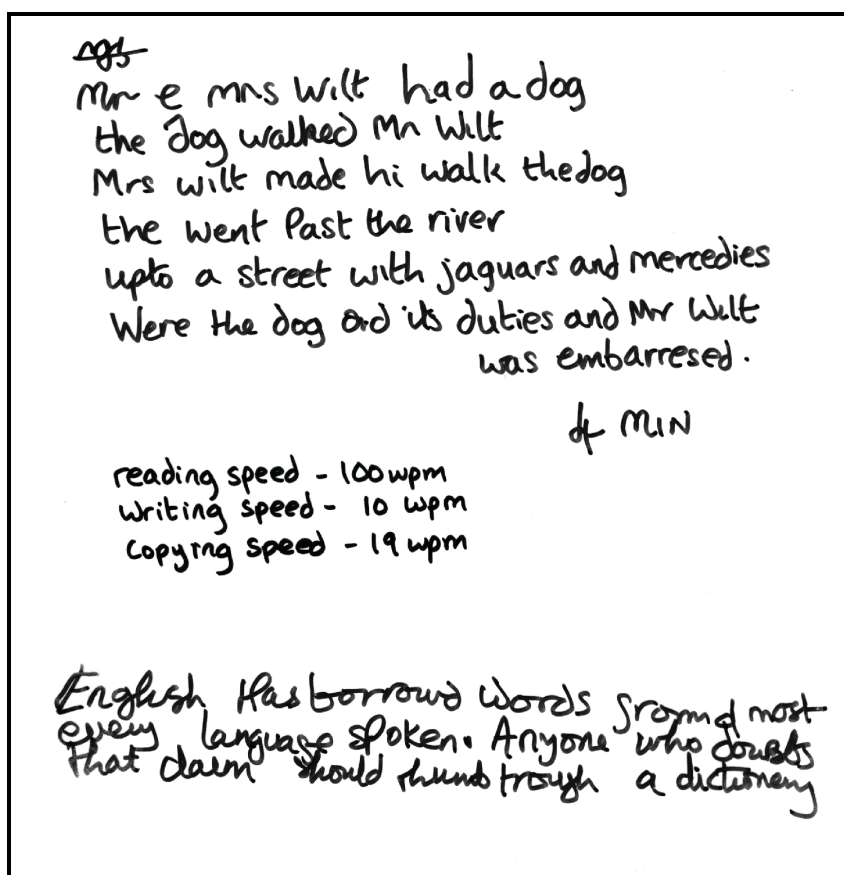 Mr e mrs Wilt had a dog
the dog walked Mr Wilt
Mrs wilt made hi walk the dog
the went Past the river
upto a street with jaguars and mercedies
Were the dog did its duties and Mr Wilt
was embarresed.
MIN
reading speed - 100 wpm
writing speed - 10 wpm
copying speed - 19 wpm
English Has borrowd words most
every language spoken. Anyone who doubts
that claim should thumb trough a dictionery